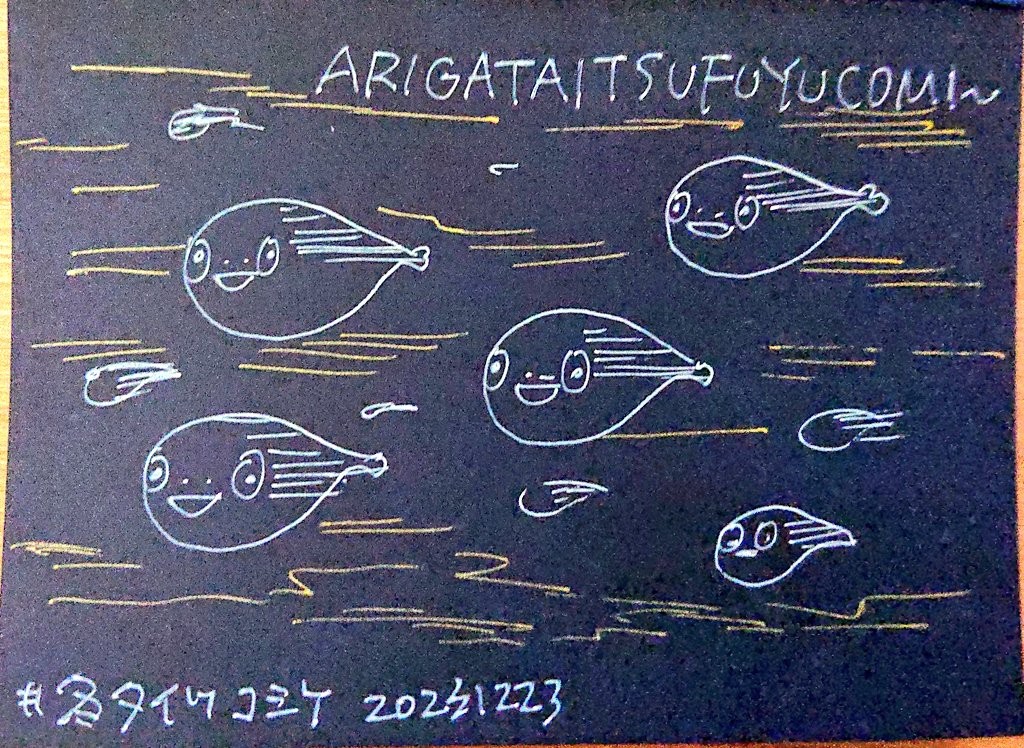 ARIGATAITSUFUYUCOMI～
#名タイツコミケ 20231223